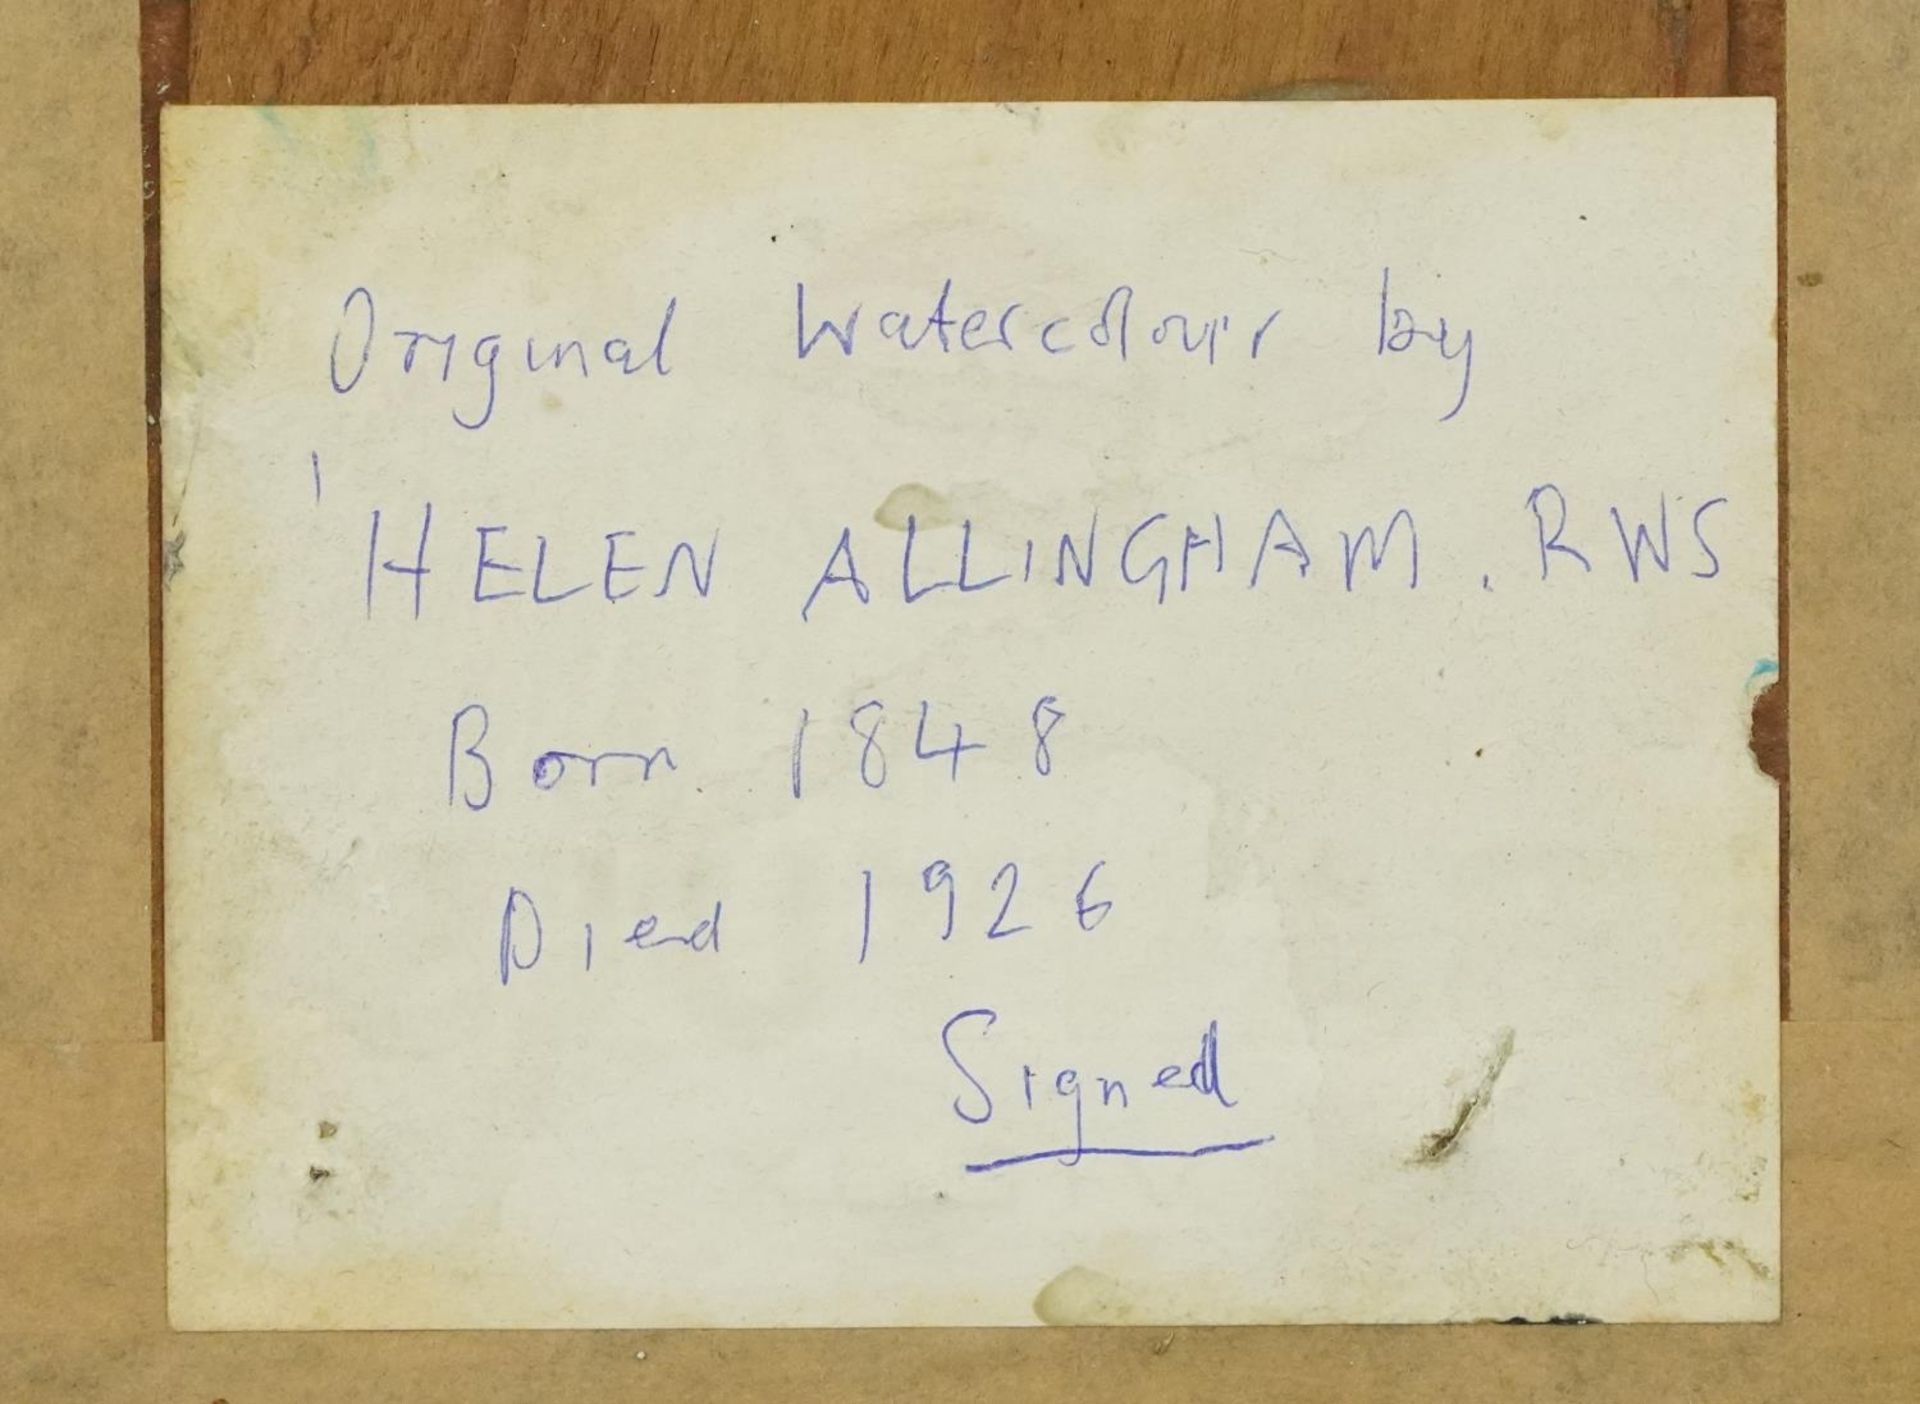 Original Watercolour by
HELEN ALLINGHAM. RWS
Born 1848
Died 1926
Signed